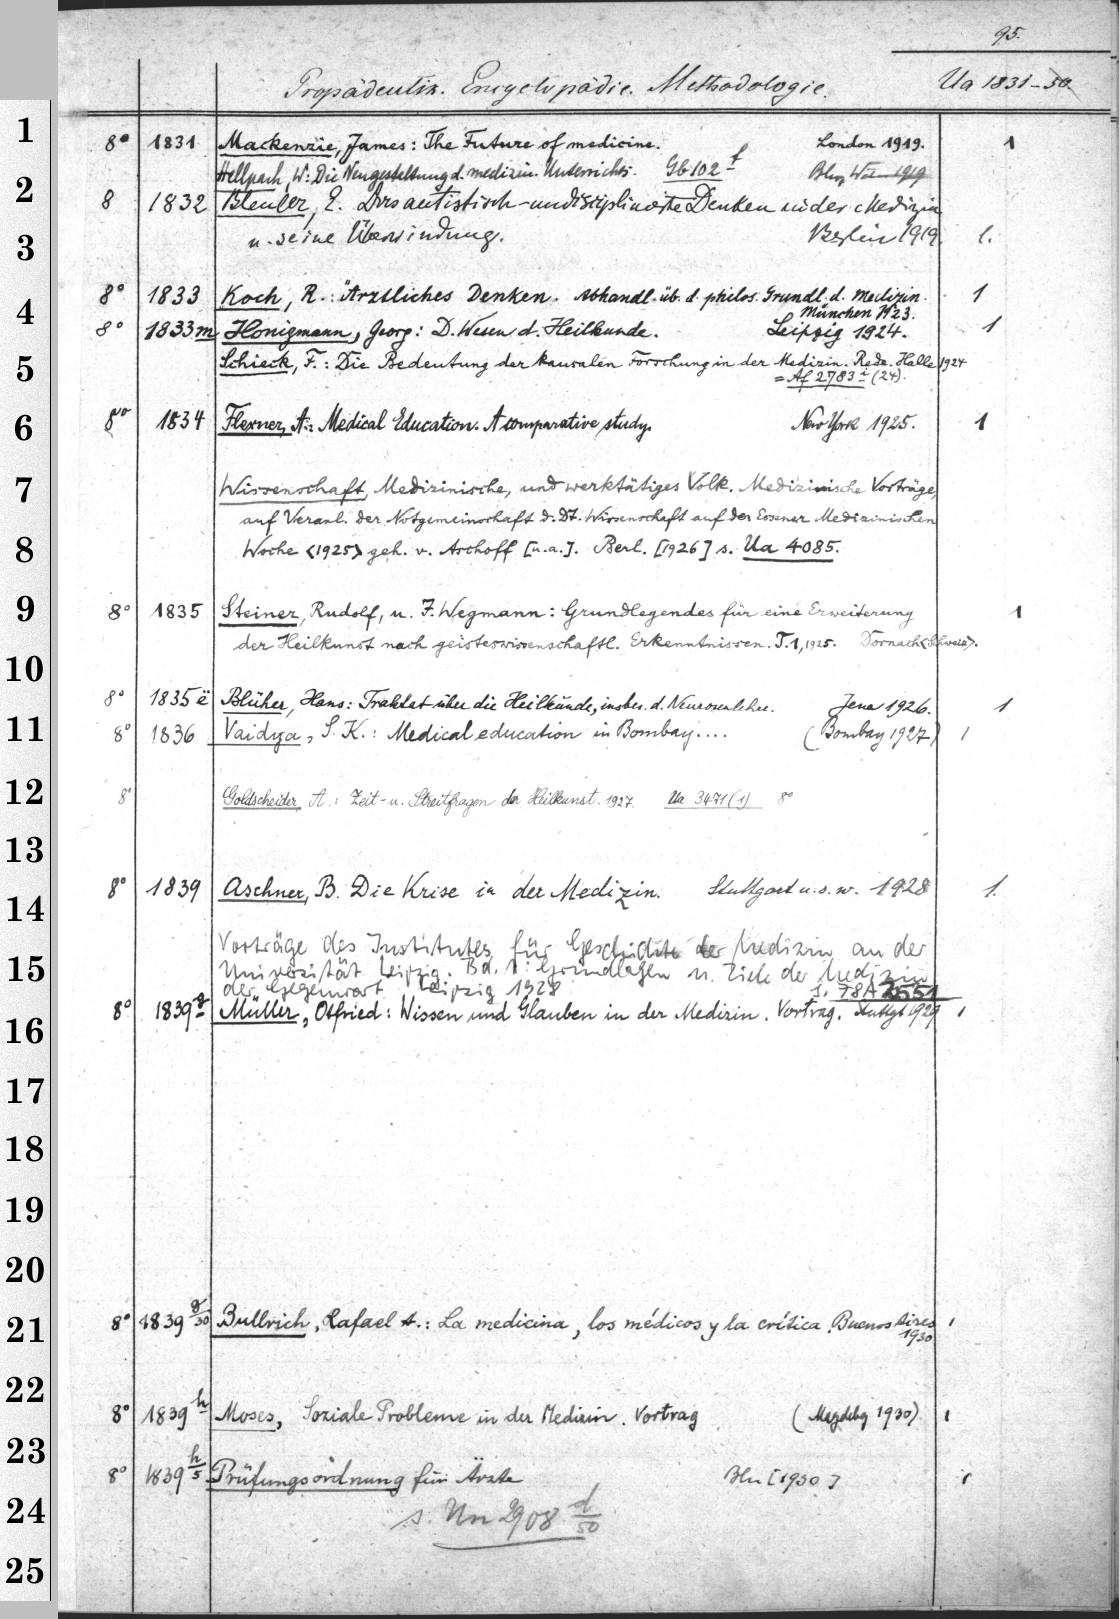 95.
Propädeutik. Encyclopädie. Methodologie. Ua 1831-50.
1 8° 1831 Mackenzie, James: The Future of medicine. London 1919. 1
Hellpach, W: Die Neugestaltung d. medizin. Unterrichts. Gb 102 f
2 8 1832 Bleuler, E. Das autistisch-undisziplinierte Denken in der Medizin
3 u. seine Überwindung. Berlin 1919. 1.
8° 1833 Koch, R.: Ärztliches Denken. Abhandl. üb. d. philos. Grundl. d. Medizin. 1
4 München 1923.
8° 1833m Honigmann, Georg: D. Wesen d. Heilkunde. Leipzig 1924. 1
5 Schieck, F.: Die Bedeutung der kausalen Forschung in der Medizin. Rede. Halle 1924
= Af 2783 (24).
6 8° 1834 Flexner, A.: Medical Education. A comparative study. New York 1925. 1
7 Wissenschaft, Medizinische, und werktätiges Volk. Medizinische Vorträge,
8 auf Veranl. der Notgemeinschaft d. Dt. Wissenschaft auf der Essener Medizinischen
Woche <1925> geh. v. Aschoff [u.a.]. Berl. [1926] s. Ua 4085.
9 8° 1835 Steiner, Rudolf, u. I. Wegmann: Grundlegendes für eine Erweiterung 1
10 der Heilkunst nach geisteswissenschaftl. Erkenntnissen. T. 1, 1925. Dornach <Schweiz>.
8° 1835 ë Blüher, Hans: Traktat über die Heilkunde, insbes. d. Neurosenlehre. Jena 1926. 1
11 8° 1836 Vaidya, S. K.: Medical education in Bombay.... (Bombay 1927) 1
12 8° Goldscheider A.: Zeit- u. Streitfragen der Heilkunst. 1927. Ua 3471 (1) 8°
13
14 8° 1839 Aschner, B. Die Krise in der Medizin. Stuttgart u.s.w. 1928 1.
Vorträge des Institutes für Geschichte der Medizin an der
15 Universität Leipzig. Bd. 1: Grundlagen u. Ziele der Medizin
der Gegenwart Leipzig 1928 s. T8A 2551
16 8° 1839 g Müller, Otfried: Wissen und Glauben in der Medizin. Vortrag. Stuttgt 1929 1
17
18
19
20
21 8° 1839 g/30 Bullrich, Rafael A.: La medicina, los médicos y la crítica. Buenos Aires 1
1930
22
8° 1839 h Moses, Soziale Probleme in der Medizin. Vortrag (Magdebg 1930) 1
23
8° 1839 h/5 Prüfungsordnung für Ärzte Bln [1930] 1
24 s. Un 2908 d/50
25